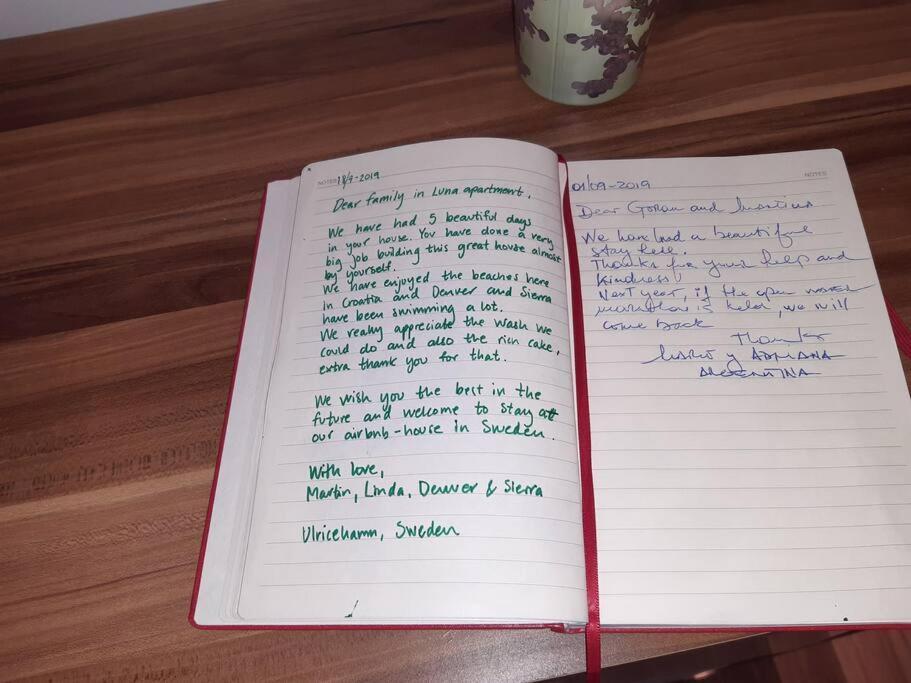 NOTES 18/7-2019
Dear family in Luna apartment,
We have had 5 beautiful days
in your house. You have done a very
big job building this great house almost
by yourself.
We have enjoyed the beaches here
in Croatia and Denver and Sierra
have been swimming a lot.
We really appreciate the wash we
could do and also the rich cake,
extra thank you for that.
We wish you the best in the
future and welcome to stay at
our airbnb-house in Sweden.
With love,
Martin, Linda, Denver & Sierra
Ulricehamn, Sweden
NOTES
01/09-2019
Dear Goran and Martina
We have had a beautiful
stay here.
Thanks for your help and
kindness!
Next year, if the open water
marathon is held, we will
come back
Thanks
y ADRIANA
ARGENTINA